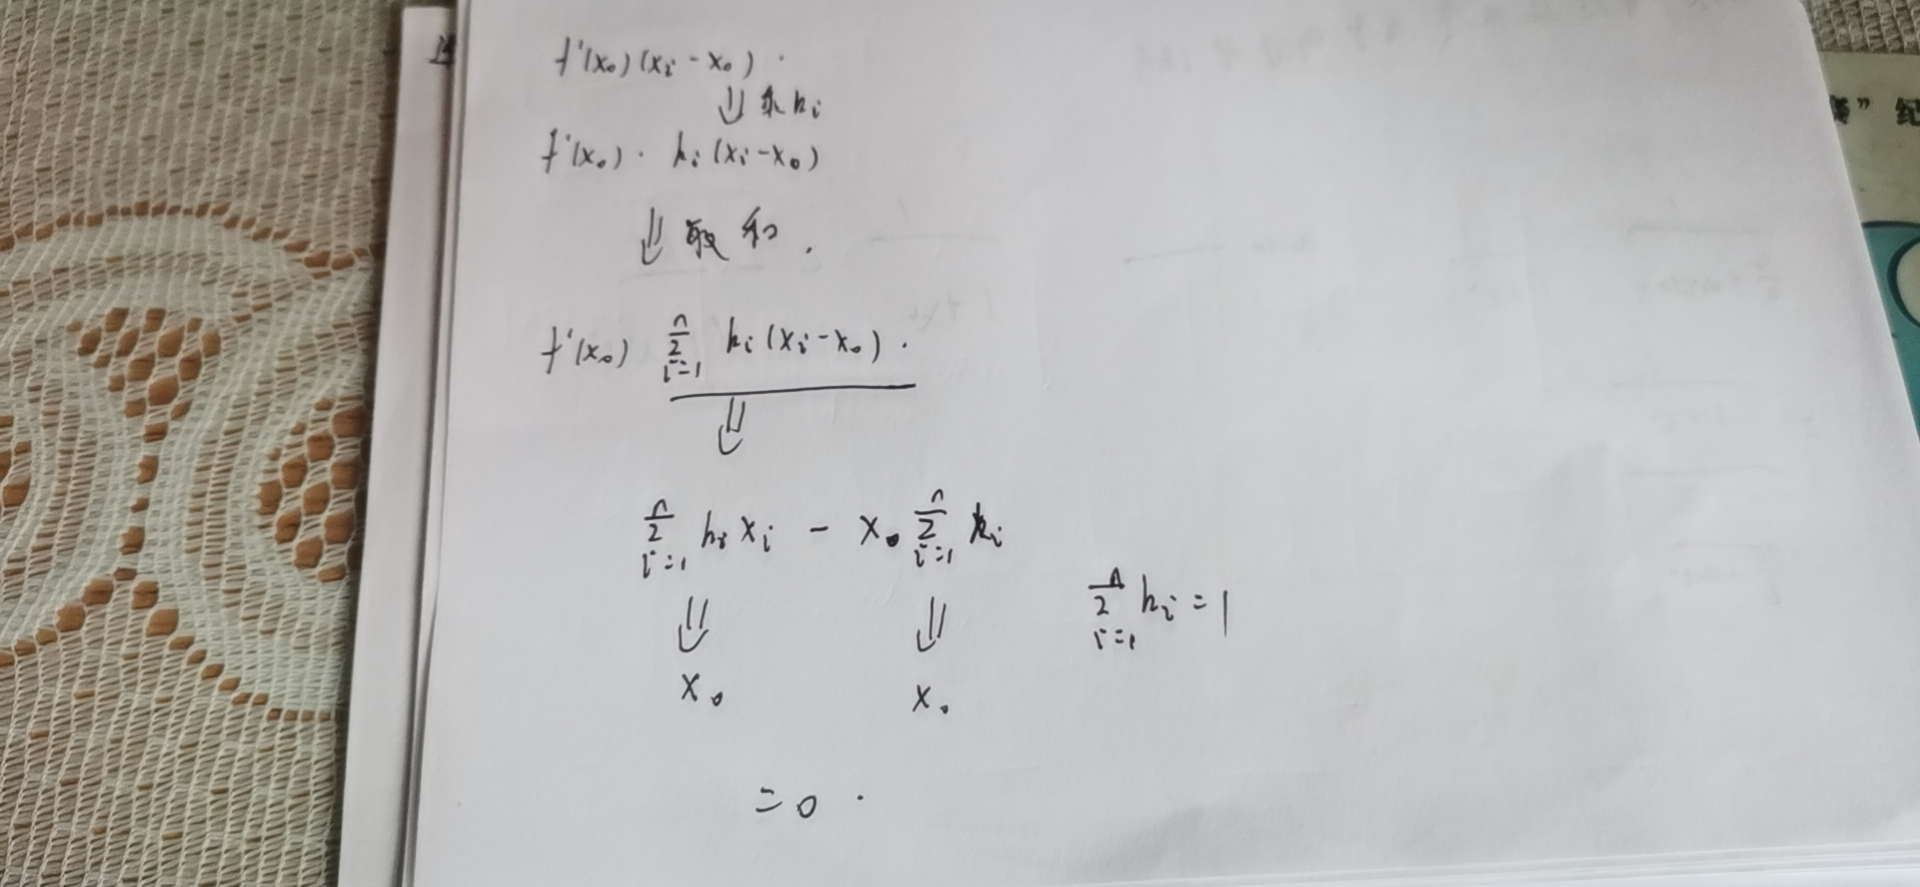 f'(x₀)(xᵢ - x₀).
⇓ 乘 kᵢ
f'(x₀)· kᵢ(xᵢ-x₀)
⇓ 取和.
f'(x₀) ∑ᵢ₌₁ⁿ kᵢ(xᵢ-x₀).
⇓
∑ᵢ₌₁ⁿ kᵢxᵢ - x₀ ∑ᵢ₌₁ⁿ kᵢ
∑ᵢ₌₁ⁿ kᵢ = 1
⇓ ⇓
x₀ x₀
= 0.
纪